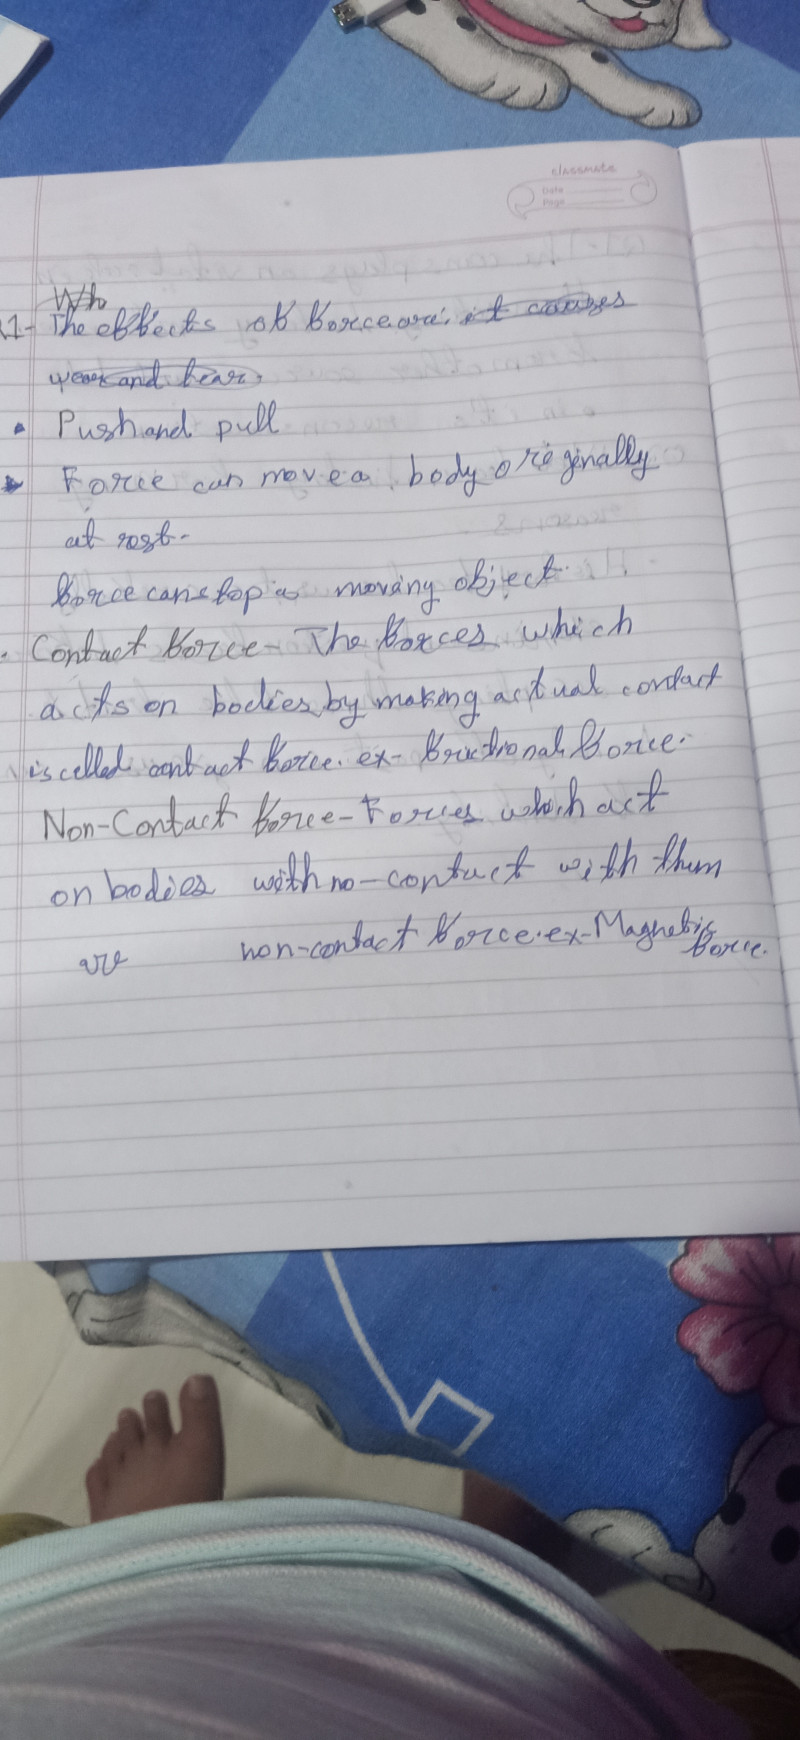 classmate
Date
Page
Who
1- The effects of force are: it causes
wear and tear.
Push and pull
Force can move a body originally
at rest.
force can stop a moving object.
Contact force - The forces which
acts on bodies by making actual contact
is called contact force. ex- frictional force.
Non-Contact force - Forces which act
on bodies with no-contact with them
are non-contact force. ex- Magnetic
force.